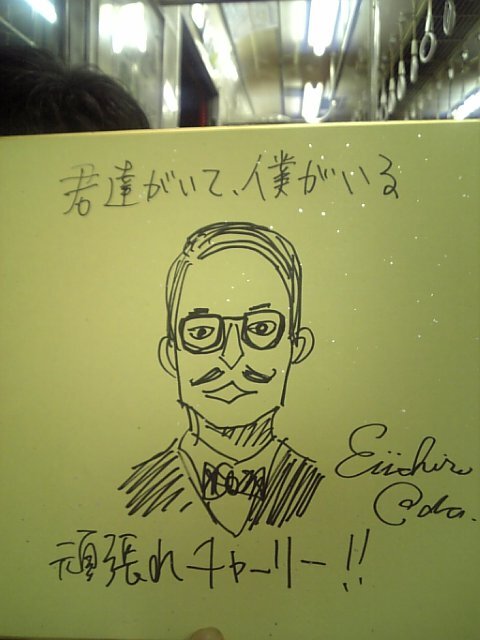 君達がいて、僕がいる
Eiichiro
Oda.
頑張れチャーリー!!